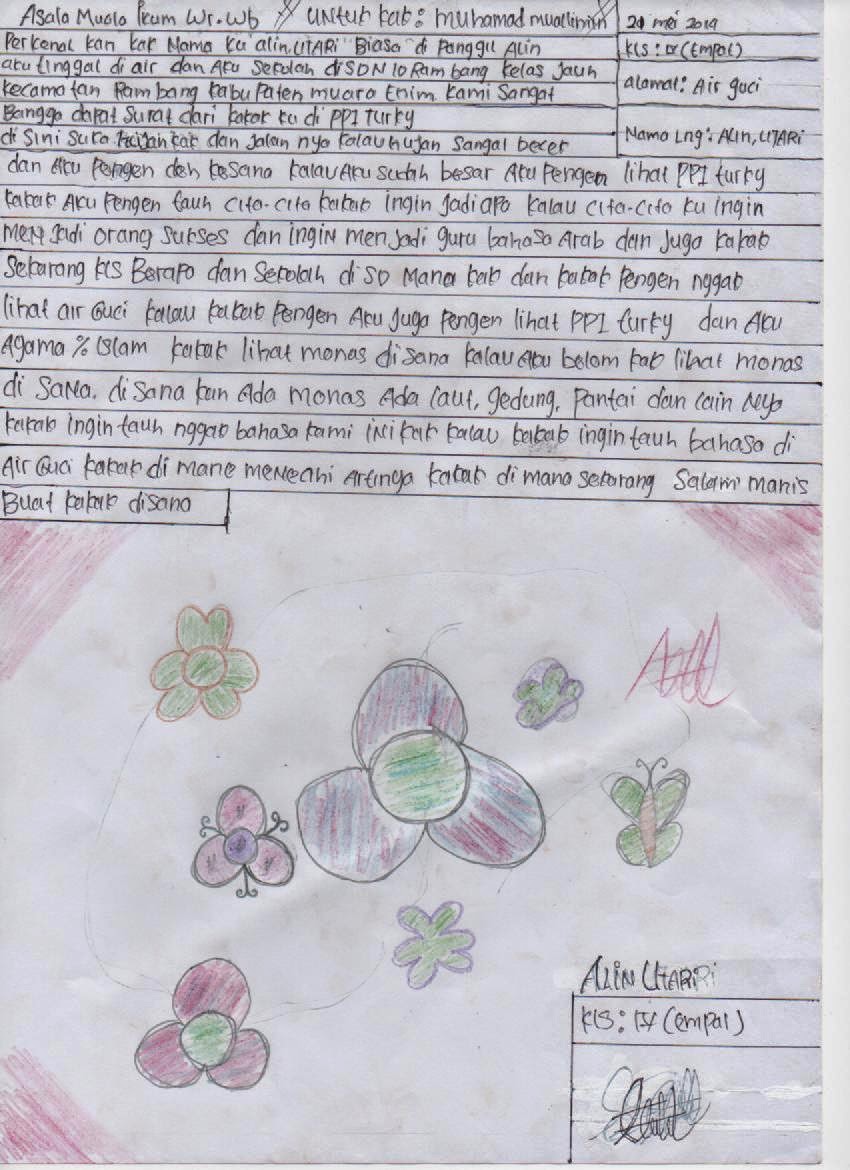 Asala Muala Ikum Wr. Wb // untuk kak: muhamad muallimin
20 mei 2019
Perkenal kan kak Nama ku alin, UTARi "Biasa" di Panggil Alin
kls: IV (Empat)
aku tinggal di air dan Aku Sekolah di SDN 10 Rambang kelas Jauh
kecamatan Rambang kabupaten muara Enim. kami Sangat
alamat: Air guci
Bangga dapat Surat dari kakak ku di PPI Turky
di Sini Suka hujan kak dan Jalan nya kalau hujan Sangat becek
Nama Lng: ALin, UTARi
dan Aku Pengen deh kesana kalau Aku Sudah besar Aku Pengen lihat PPI turky
kakak Aku Pengen tauh cita-cita kakak ingin Jadi apa kalau cita-cita ku ingin
menjadi orang Sukses dan ingin menjadi guru bahasa Arab dan Juga kakak
Sekarang kls Berapa dan Sekolah di SD Mana kak dan kakak Pengen nggak
lihat air Guci kalau kakak Pengen Aku Juga Pengen lihat PPI turky dan Aku
Agama % Islam kakak lihat monas disana kalau Aku belom kak lihat monas
di Sana. di Sana kan Ada monas Ada laut, gedung, Pantai dan lain Nya
kakak ingin tauh nggak bahasa kami ini kak kalau kakak ingin tauh bahasa di
Air Guci kakak di mane meneahi Artinya kakak di mana Sekarang Salam manis
Buat kakak disana
ALiN UTARiRi
kls: IV (empat)